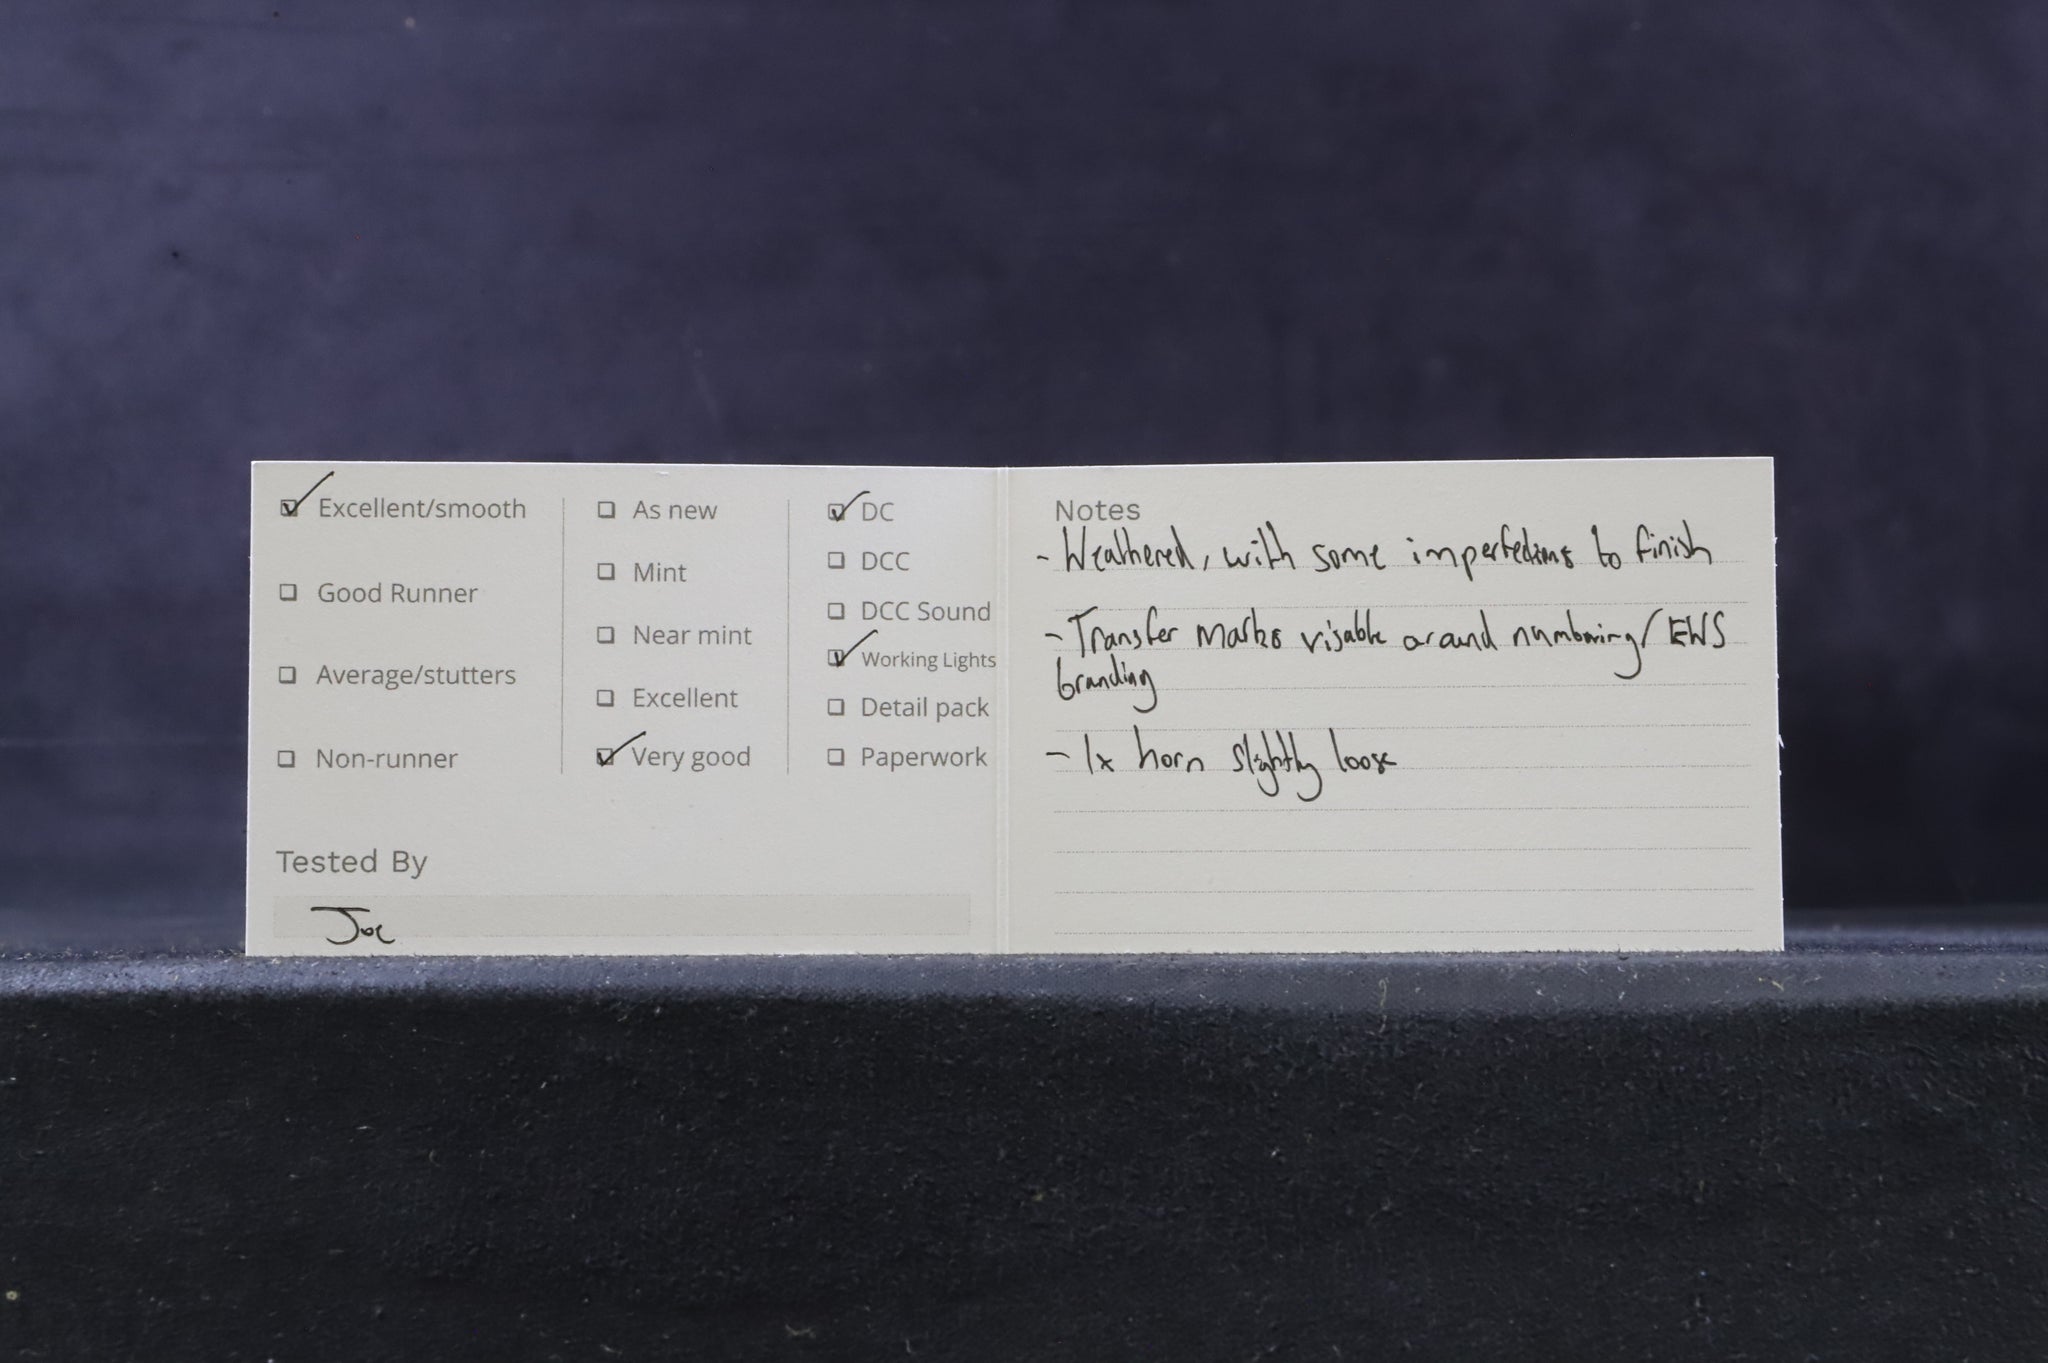 ☑ Excellent/smooth
☐ Good Runner
☐ Average/stutters
☐ Non-runner
☐ As new
☐ Mint
☐ Near mint
☐ Excellent
☑ Very good
☑ DC
☐ DCC
☐ DCC Sound
☑ Working Lights
☐ Detail pack
☐ Paperwork
Tested By
Joe
Notes
- Weathered, with some imperfections to finish
- Transfer marks visable around numbering/ EWS
branding
- 1x horn slightly loose